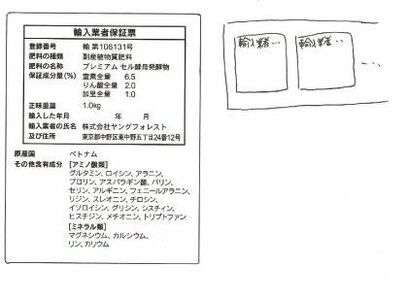 輸入業者保証票
登録番号 輸 第106131号
肥料の種類 副産植物質肥料
肥料の名称 プレミアム セル酵母発酵物
保証成分量(%) 窒素全量 6.5
りん酸全量 2.0
加里全量 1.0
正味重量 1.0kg
輸入した年月 年 月
輸入業者の氏名 株式会社ヤングフォレスト
及び住所 東京都中野区東中野五丁目24番12号
原産国 ベトナム
その他含有成分 [アミノ酸類]
グルタミン、ロイシン、アラニン、
プロリン、アスパラギン酸、バリン、
セリン、アルギニン、フェニールアラニン、
リジン、スレオニン、チロシン、
イソロイシン、グリシン、シスチン、
ヒスチジン、メチオニン、トリプトファン
[ミネラル類]
マグネシウム、カルシウム、
リン、カリウム
輸入業者… 輸入業者…